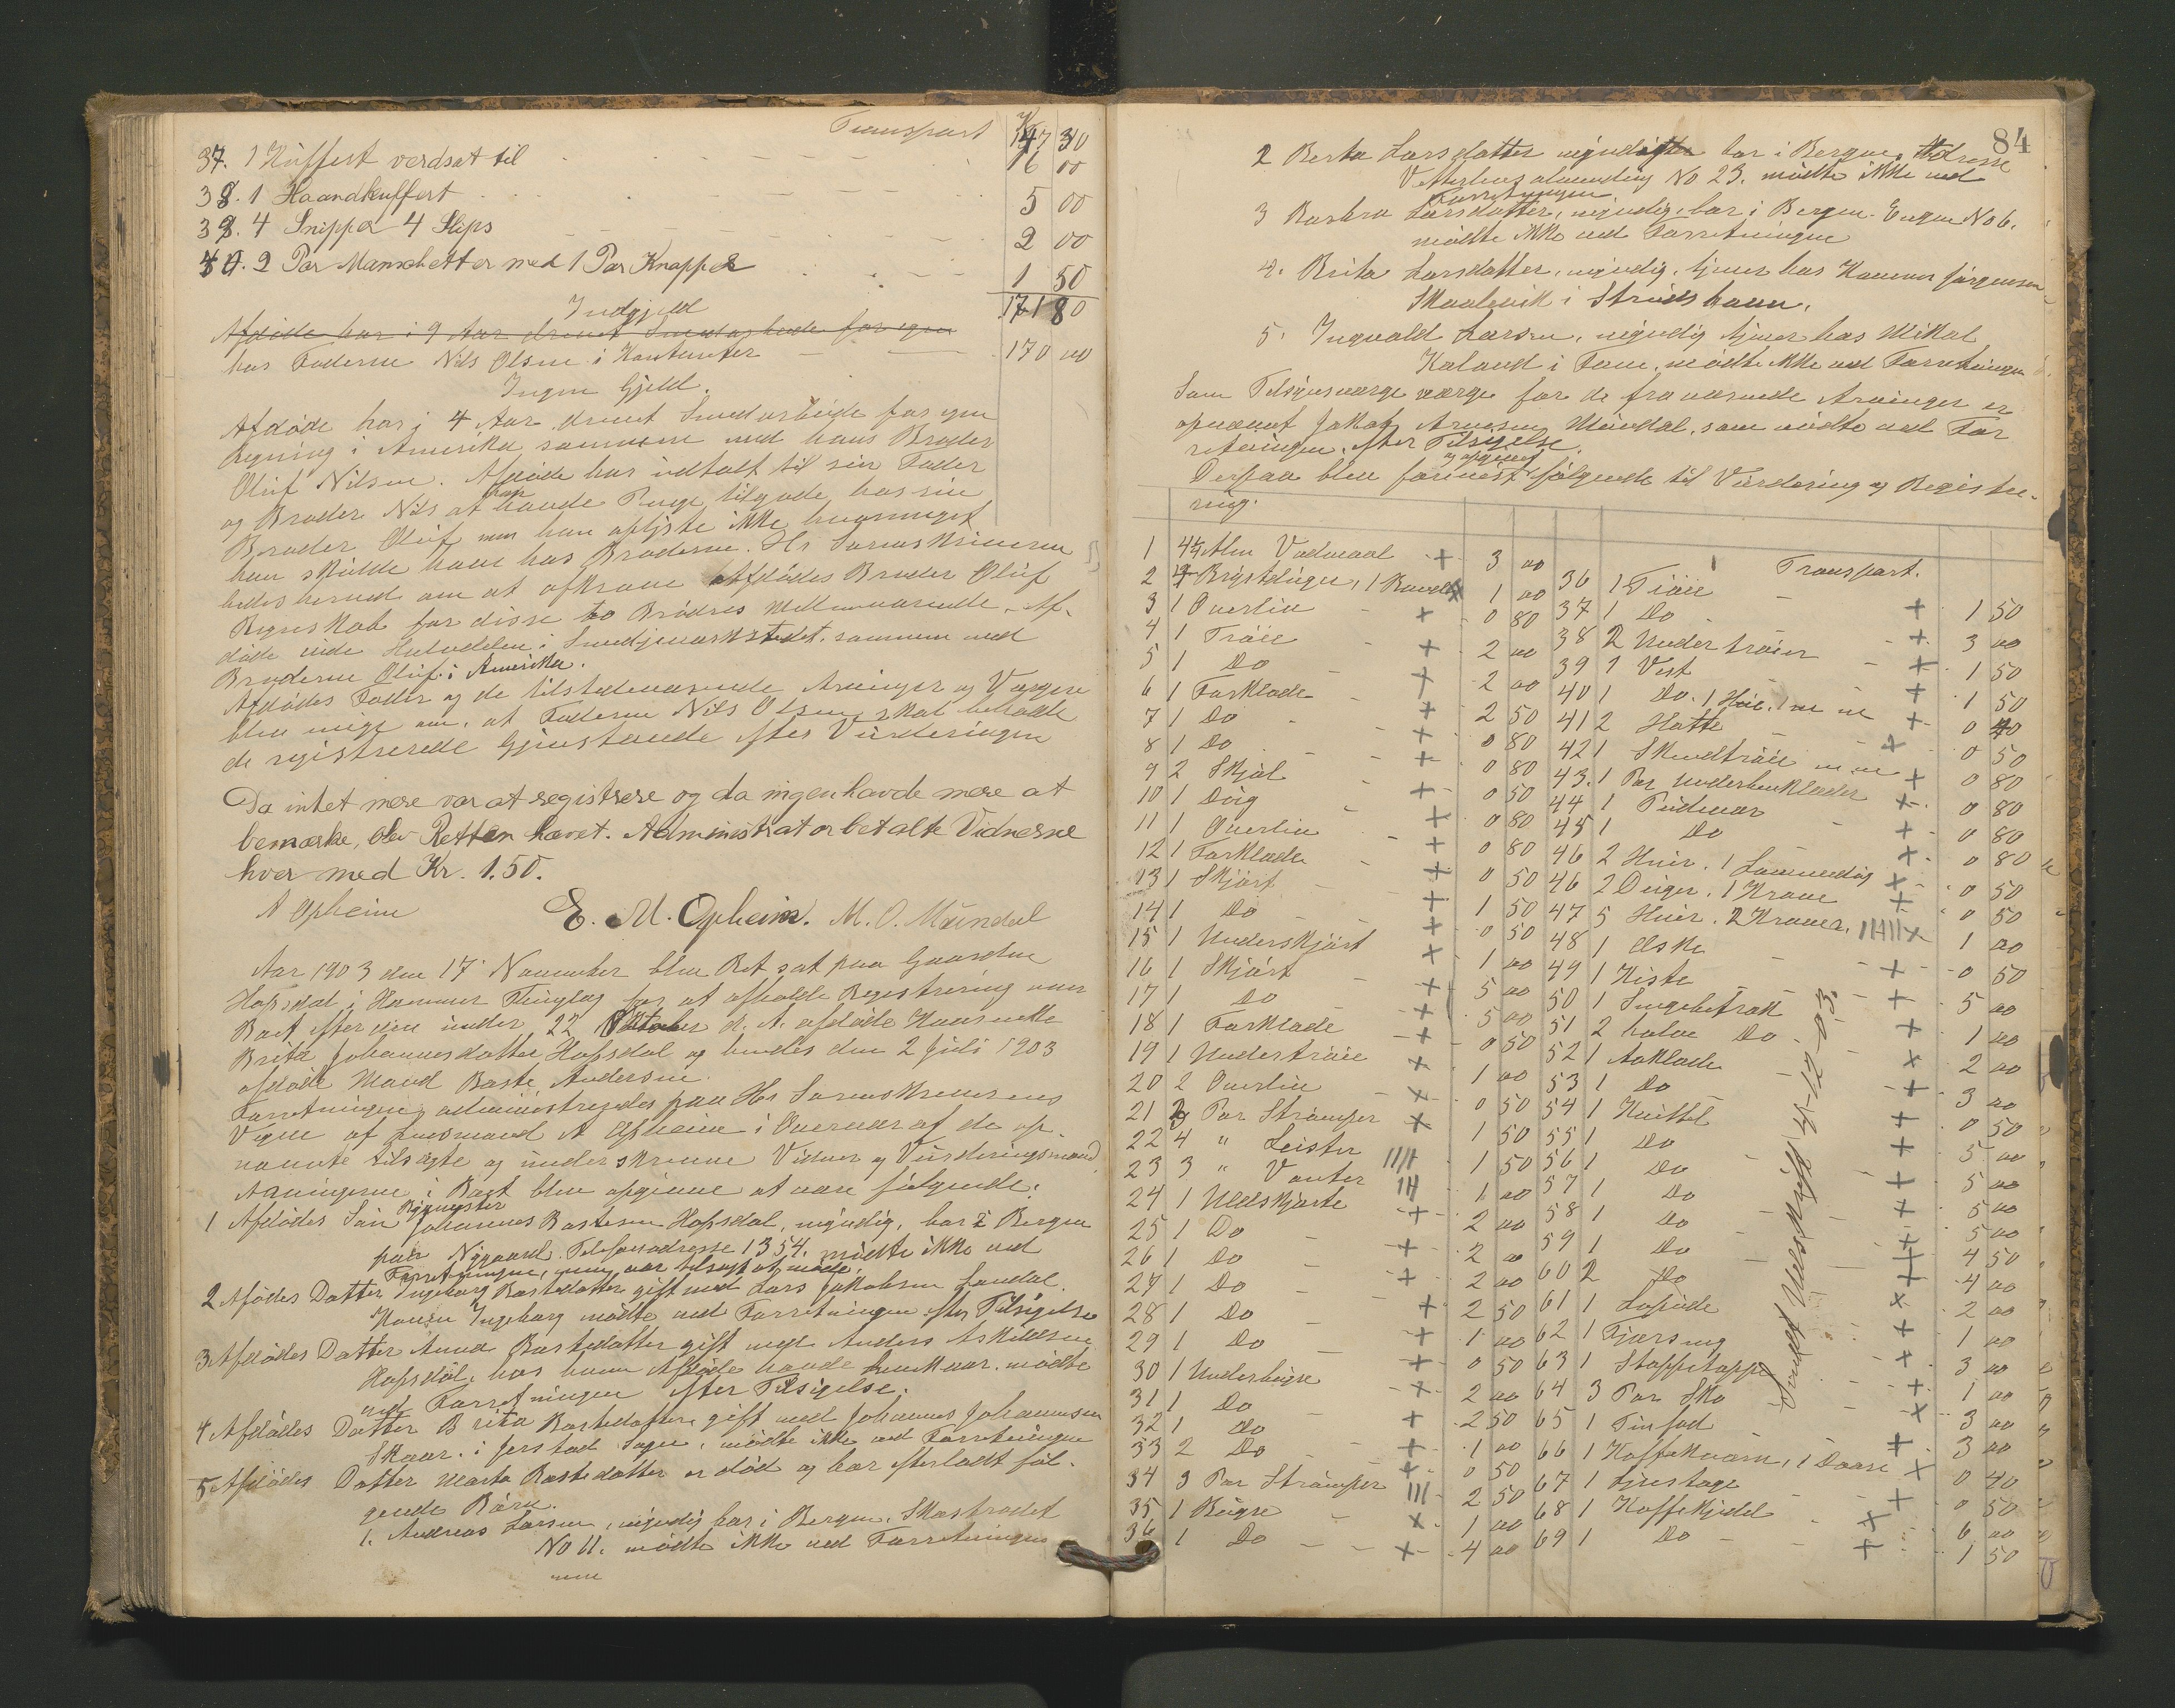 Transport Kr 147 30
37. 1 Kuffert verdsat til 16 00
38. 1 Haandkuffert 5 00
39. 4 Snipper 4 Slips 2 00
40. 2 Par Manschetter med 1 Par Knapper 1 50
171 80
Indgjeld
Afdøde har i 9 Aar drevet Smedarbeide for egen
hos Faderen Nils Olsen i Kontanter 170 00
Ingen Gjeld.
Afdøde har i 4 Aar drevet Smedarbeide for egen
Regning i Amerika sammen med hans Broder
Oluf Nilsen. Afdøde har udtalt til sin Fader
og Broder Nils at han havde Penge tilgode hos sin
Broder Oluf men han oplyste ikke hvormeget
han skulde have hos Broderen. Hr Sorenskriveren
bedes herved om at afkræve Afdødes Broder Oluf
Regnskab for disse to Brødres Mellemværende. Af-
døde eiede Halvdelen i Smedjeværkstedet sammen med
Broderen Oluf i Amerika.
Afdødes Fader og de tilstedeværende Arvinger og Værgere
blev enige om, at Faderen Nils Olsen skal beholde
de registrerede Gjenstande efter Vurderingen
Da intet mere var at registrere og da ingen havde mere at
bemærke, blev Retten hævet. Administrator betalte Vidnerne
hver med Kr. 1.50.
A Opheim E. M. Opheim. M. O. Mundal
Aar 1903 den 17 November blev Ret sat paa Gaarden
Hopsdal i Hammer Thinglag for at afholde Registrering over
Boet efter den under 22 Oktober d. A. afdøde Kaarenke
Brita Johannesdatter Hopsdal og hendes den 2 Juli 1903
afdøde Mand Baste Andersen.
Forretningen administreredes paa Hr Sorenskriverens
Vegne af Lensmand A Opheim i Overvær af de op-
nævnte tilsagte og underskrevne Vidner og Vurderingsmænd
Arvingerne i Boet blev opgivne at være følgende:
1 Afdødes Søn Johannes Bastesen Hopsdal, myndig, bor i Bergen
paa Nygaard. Telefonadresse 1354. mødte ikke ved
Forretningen, men var tilsagt at møde.
2 Afdødes Datter Ingeborg Bastedatter gift med Lars Jakobsen
Konen Ingeborg mødte ved Forretningen efter Tilsigelse
3 Afdødes Datter Anna Bastedatter gift med Anders Askildsen
Hopsdal, hos hvem Afdøde havde sit Kaar. mødte
ved Forretningen efter Tilsigelse.
4 Afdødes Datter Brita Bastedatter gift med Johannes Johannesen
Skaar. i Sogn, mødte ikke ved Forretningen
5 Afdødes Datter Marta Bastedatter er død og har efterladt føl-
gende Børn.
1. Andreas Larsen, myndig bor i Bergen. Skostrædet
No 11. mødte ikke ved Forretningen
84
2 Berta Larsdatter myndig bor i Bergen. Adresse
No 23. mødte ikke ved
Forretningen
3 Barbra Larsdatter, myndig, bor i Bergen. Engen No 6.
mødte ikke ved Forretningen
4. Brita Larsdatter, myndig, tjener hos Jørgensen
Skaalevik i
5. Ingvald Larsen, myndig tjener hos Mikal
Kaland i Fane. mødte ikke ved Forretningen
Som Tilsynsværge værge for de fraværende Arvinger er
opnævnt Jakob Arnesen Mundal, som mødte ved For
retningen efter Tilsigelse.
Derpaa blev forevist og opgivet følgende til Vurdering og Registre-
ring.
1 4¼ Alen Vadmaal + 3 00
2 Brystduger, 1 x 1 00
3 1 Overliv + 0 80
4 1 Trøie + 2 00
5 1 Do + 2 00
6 1 Forklæde + 2 50
7 1 Do + 0 80
8 1 Do + 0 80
9 2 Skjøl + 0 50
10 1 Dug + 0 80
11 1 Overliv + 0 80
12 1 Forklæde + 0 50
13 1 Skjørt + 1 50
14 1 Do + 0 50
15 1 Underskjørt + 1 00
16 1 Skjørt + 5 00
17 1 Do + 5 00
18 1 Forklæde + 0 50
19 1 Undertrøie x 1 00
20 2 Overliv x 0 50
21 3 Par Strømper x 1 50
22 4 " Leister IIII 1 50
23 3 " Vanter III 1 00
24 1 Uldskjorte + 2 00
25 1 Do + 2 00
26 1 Do + 2 00
27 1 Do + 2 50
28 1 Do + 1 00
29 1 Do + 0 50
30 1 Underbugse x 2 00
31 1 Do + 2 50
32 1 Do + 1 00
33 2 Do + 0 50
34 3 Par Strømper III 2 50
35 1 Bugse x 1 00
36 1 Do x 4 00
Transport.
36 1 Trøie + 1 50
37 1 Do + 3 00
38 2 Undertrøier + 1 50
39 1 Vest + 1 50
40 1 Do. 1 Hue. m m + 0 40
41 2 Hatte x 0 50
42 1 Skindtrøie m m + 0 80
43. 1 Par Underbenklæder x 0 80
44 1 Pudevar + 0 80
45 1 Do x 0 80
46 2 Huer. 1 Lommedug x 0 50
46 2 Duger. 1 Krave + 0 50
47 5 Huer. 2 Kraver. x 1 00
48 1 Æske + 0 50
49 1 Kiste + 5 00
50 1 Sengebetræk + 1 00
51 2 halve Do x 2 00
52 1 Aaklæde + 3 00
53 1 Do + 0 50
54 1 Knittel + 5 00
55 1 Do + 5 00
56 1 Do + 5 00
57 1 Do + 5 00
58 1 Do + 4 50
59 1 Do + 4 00
60 2 Do x 2 00
61 1 Lopude + 1 00
62 1 Fjærseng + 3 00
63 1 Stoppetæppe + 1 00
64 3 Par Sko x 3 00
65 1 Tinfad + 3 00
66 1 Kaffekværn, 1 Daase x 0 40
67 1 Lysestage + 0 50
68 1 Kaffekjedel x 6 00
69 1 Do + 1 50
Udskrift 4-12-03.